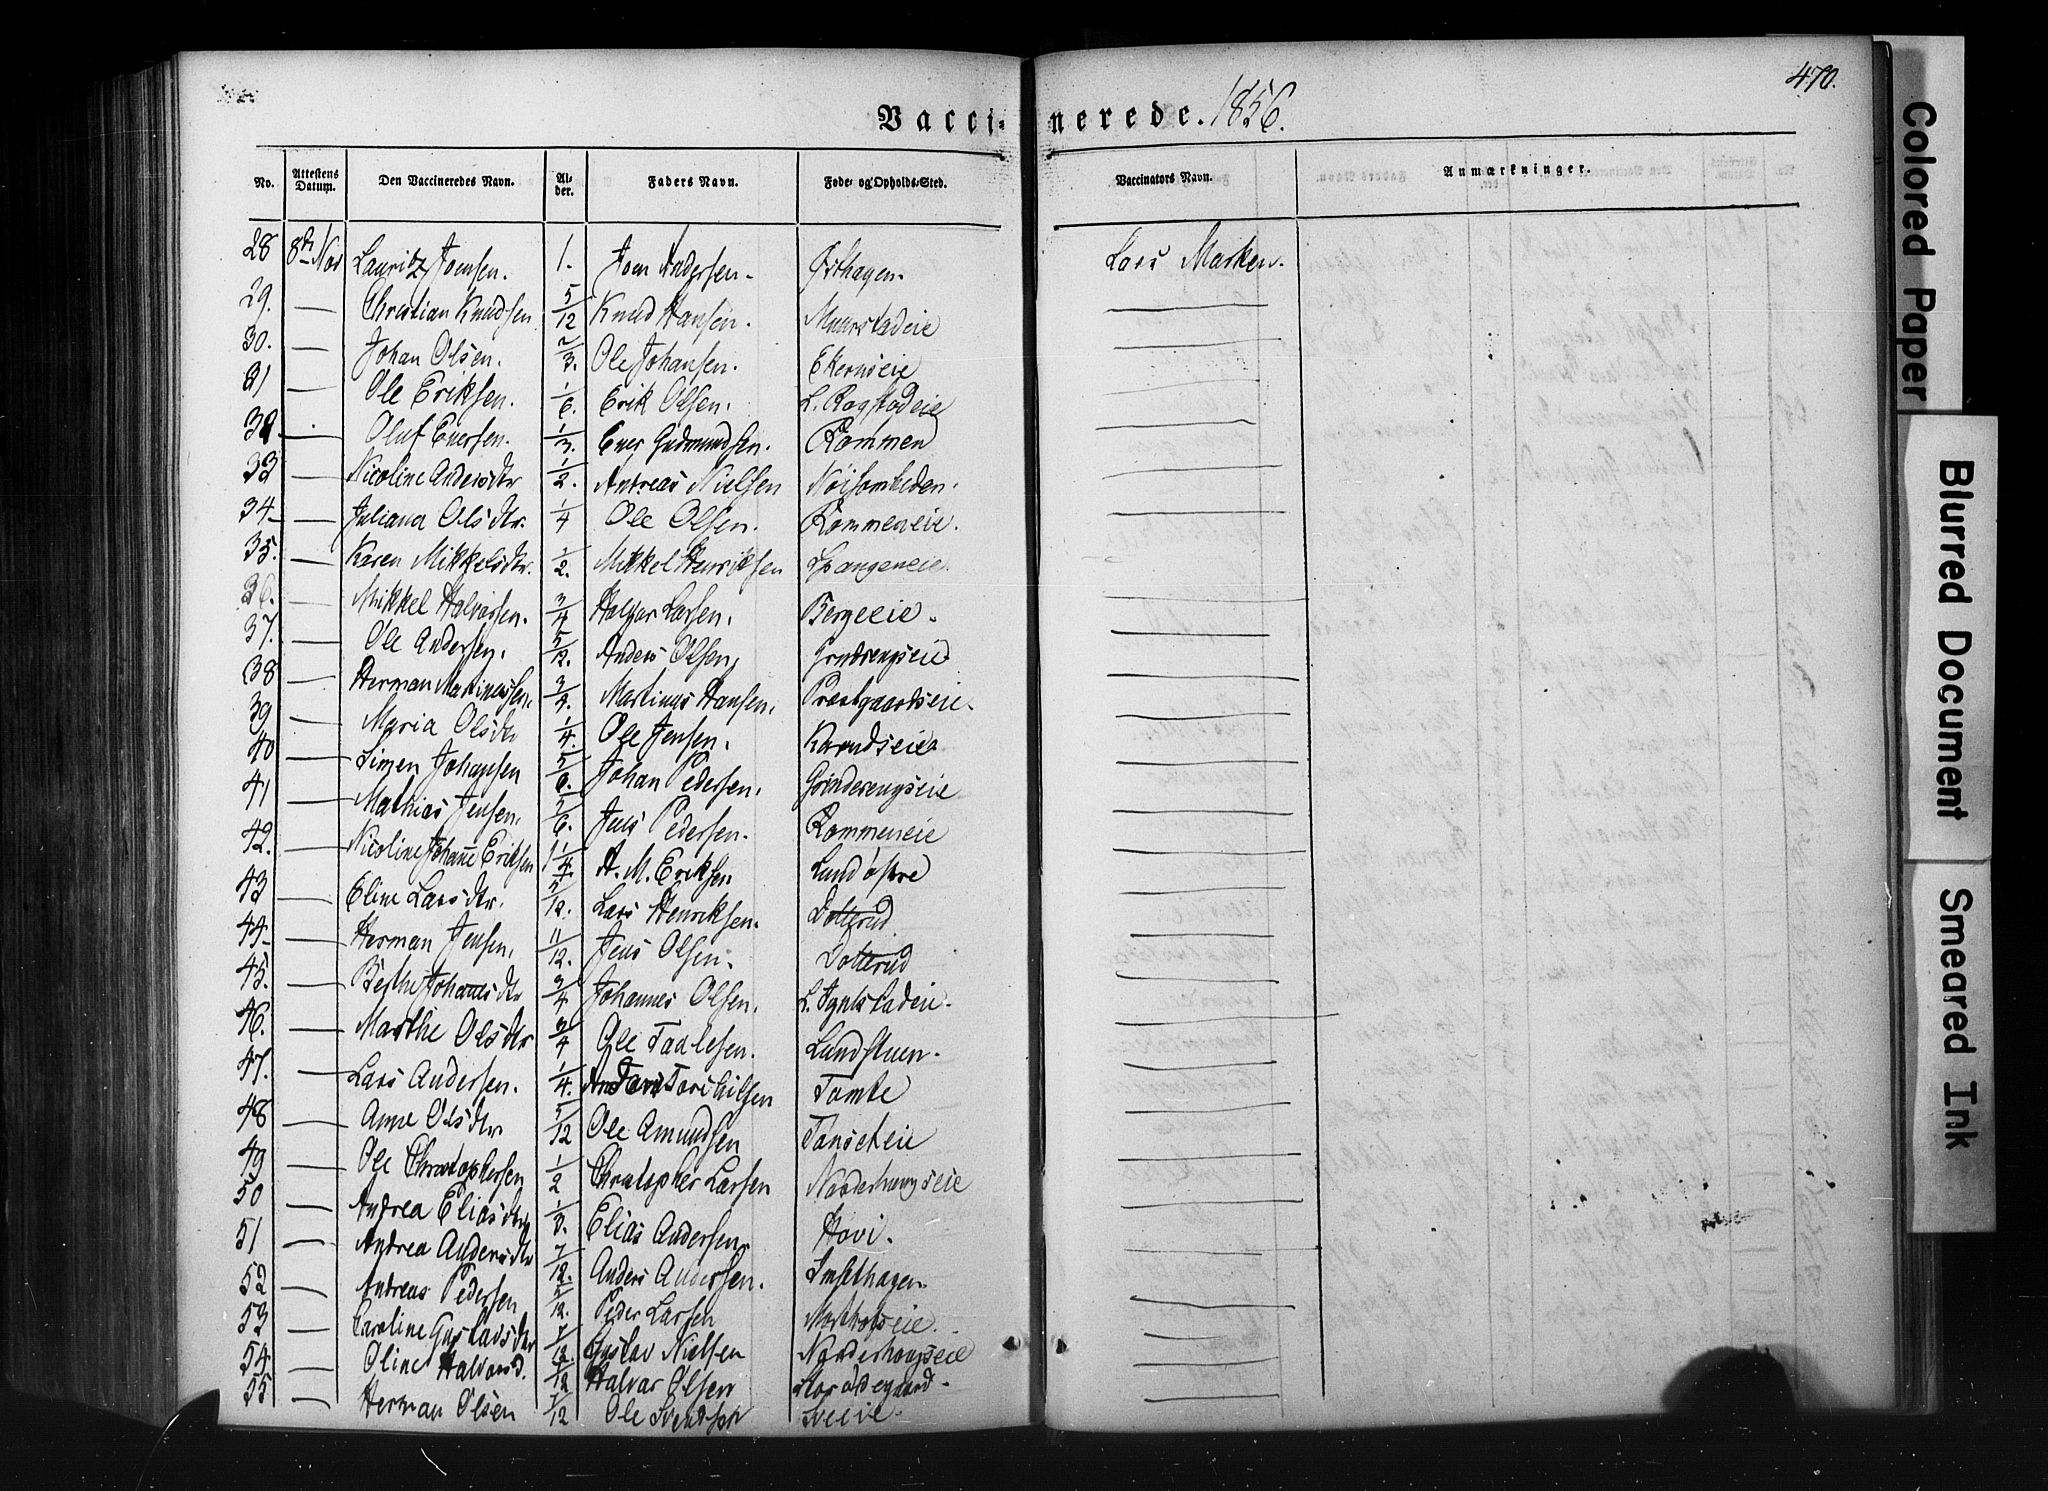 470.
Vaccinerede. 1856.
No. Attestens Datum. Den Vaccineredes Navn. Alder. Faders Navn. Føde- og Opholds-Sted. Vaccinators Navn. Anmærkninger.
28 8de Nov Lauritz Joensen. 1. Joen Andersen. Østhagen. Lars Marken.
29. — Christian Knudsen 5/12 Knud Hansen. Muurstadeie —
30. — Johan Olsen. 2/3. Ole Johansen. Ekernseie —
31 — Ole Eriksen. 1/6. Erik Olsen. L. Rogstadeie —
32 — Oluf Eversen. 1/3. Ever Gudmundsen. Kommen —
33 — Nicoline Andersdtr 1/2. Andreas Nielsen Nøisomheden. —
34 — Juliana Olsdtr. 1/4 Ole Olsen. Kommeneie. —
35. — Karen Mikkelsdtr. 1/2. Mikkel Henriksen Spangeneie. —
36. — Mikkel Halvorsen. 3/4 Halvor Larsen. Bergeeie. —
37. — Ole Andersen. 5/12. Anders Olsen, —
38 — Herman Martinussen. 3/4. Martinus Hansen. Præstgaardseie. —
39 — Maria Olsdtr 1/4. Ole Jensen. —
40 — Simen Johansen 5/6. Johan Pedersen. Grinderengseie —
41 — Mathias Jensen. 5/6. Jens Pedersen. Kommeneie —
42. — Nicoline Johanne Eriksen 1 1/4 A. M. Eriksen Lund østre —
43 — Eline Larsdtr. 5/12. Lars Henriksen. Dotterud —
44 — Herman Jensen. 11/12. Jens Olsen. Dotterud —
45. — Berthe Johannesdtr 3/4 Johannes Olsen. —
46. — Marthe Olsdtr 3/4 Ole Taalesen. Lundstuen. —
47. — Lars Andersen. 1/4. Tomte —
48 — Anne Olsdtr 5/12 Ole Amundsen Tanseteie —
49 — Ole Christophersen 1/2 Christopher Larsen Norderhaugseie —
50 — Andrea Eliasdtr 1/3. Elias Andersen. Hovi. —
51 — Andrea Andersdtr 7/12. Anders Andersen. —
52 — Andreas Pedersen 5/12. Peder Larsen —
53 — Caroline Gustavsdtr 7/12. Gustav Nielsen Norderhougseie —
54 — Oline Halvorsd. Halvor Olsen —
55 — Herman Olsen Ole Svendsen Sveeie. —
Colored Paper
Blurred Document
Smeared Ink